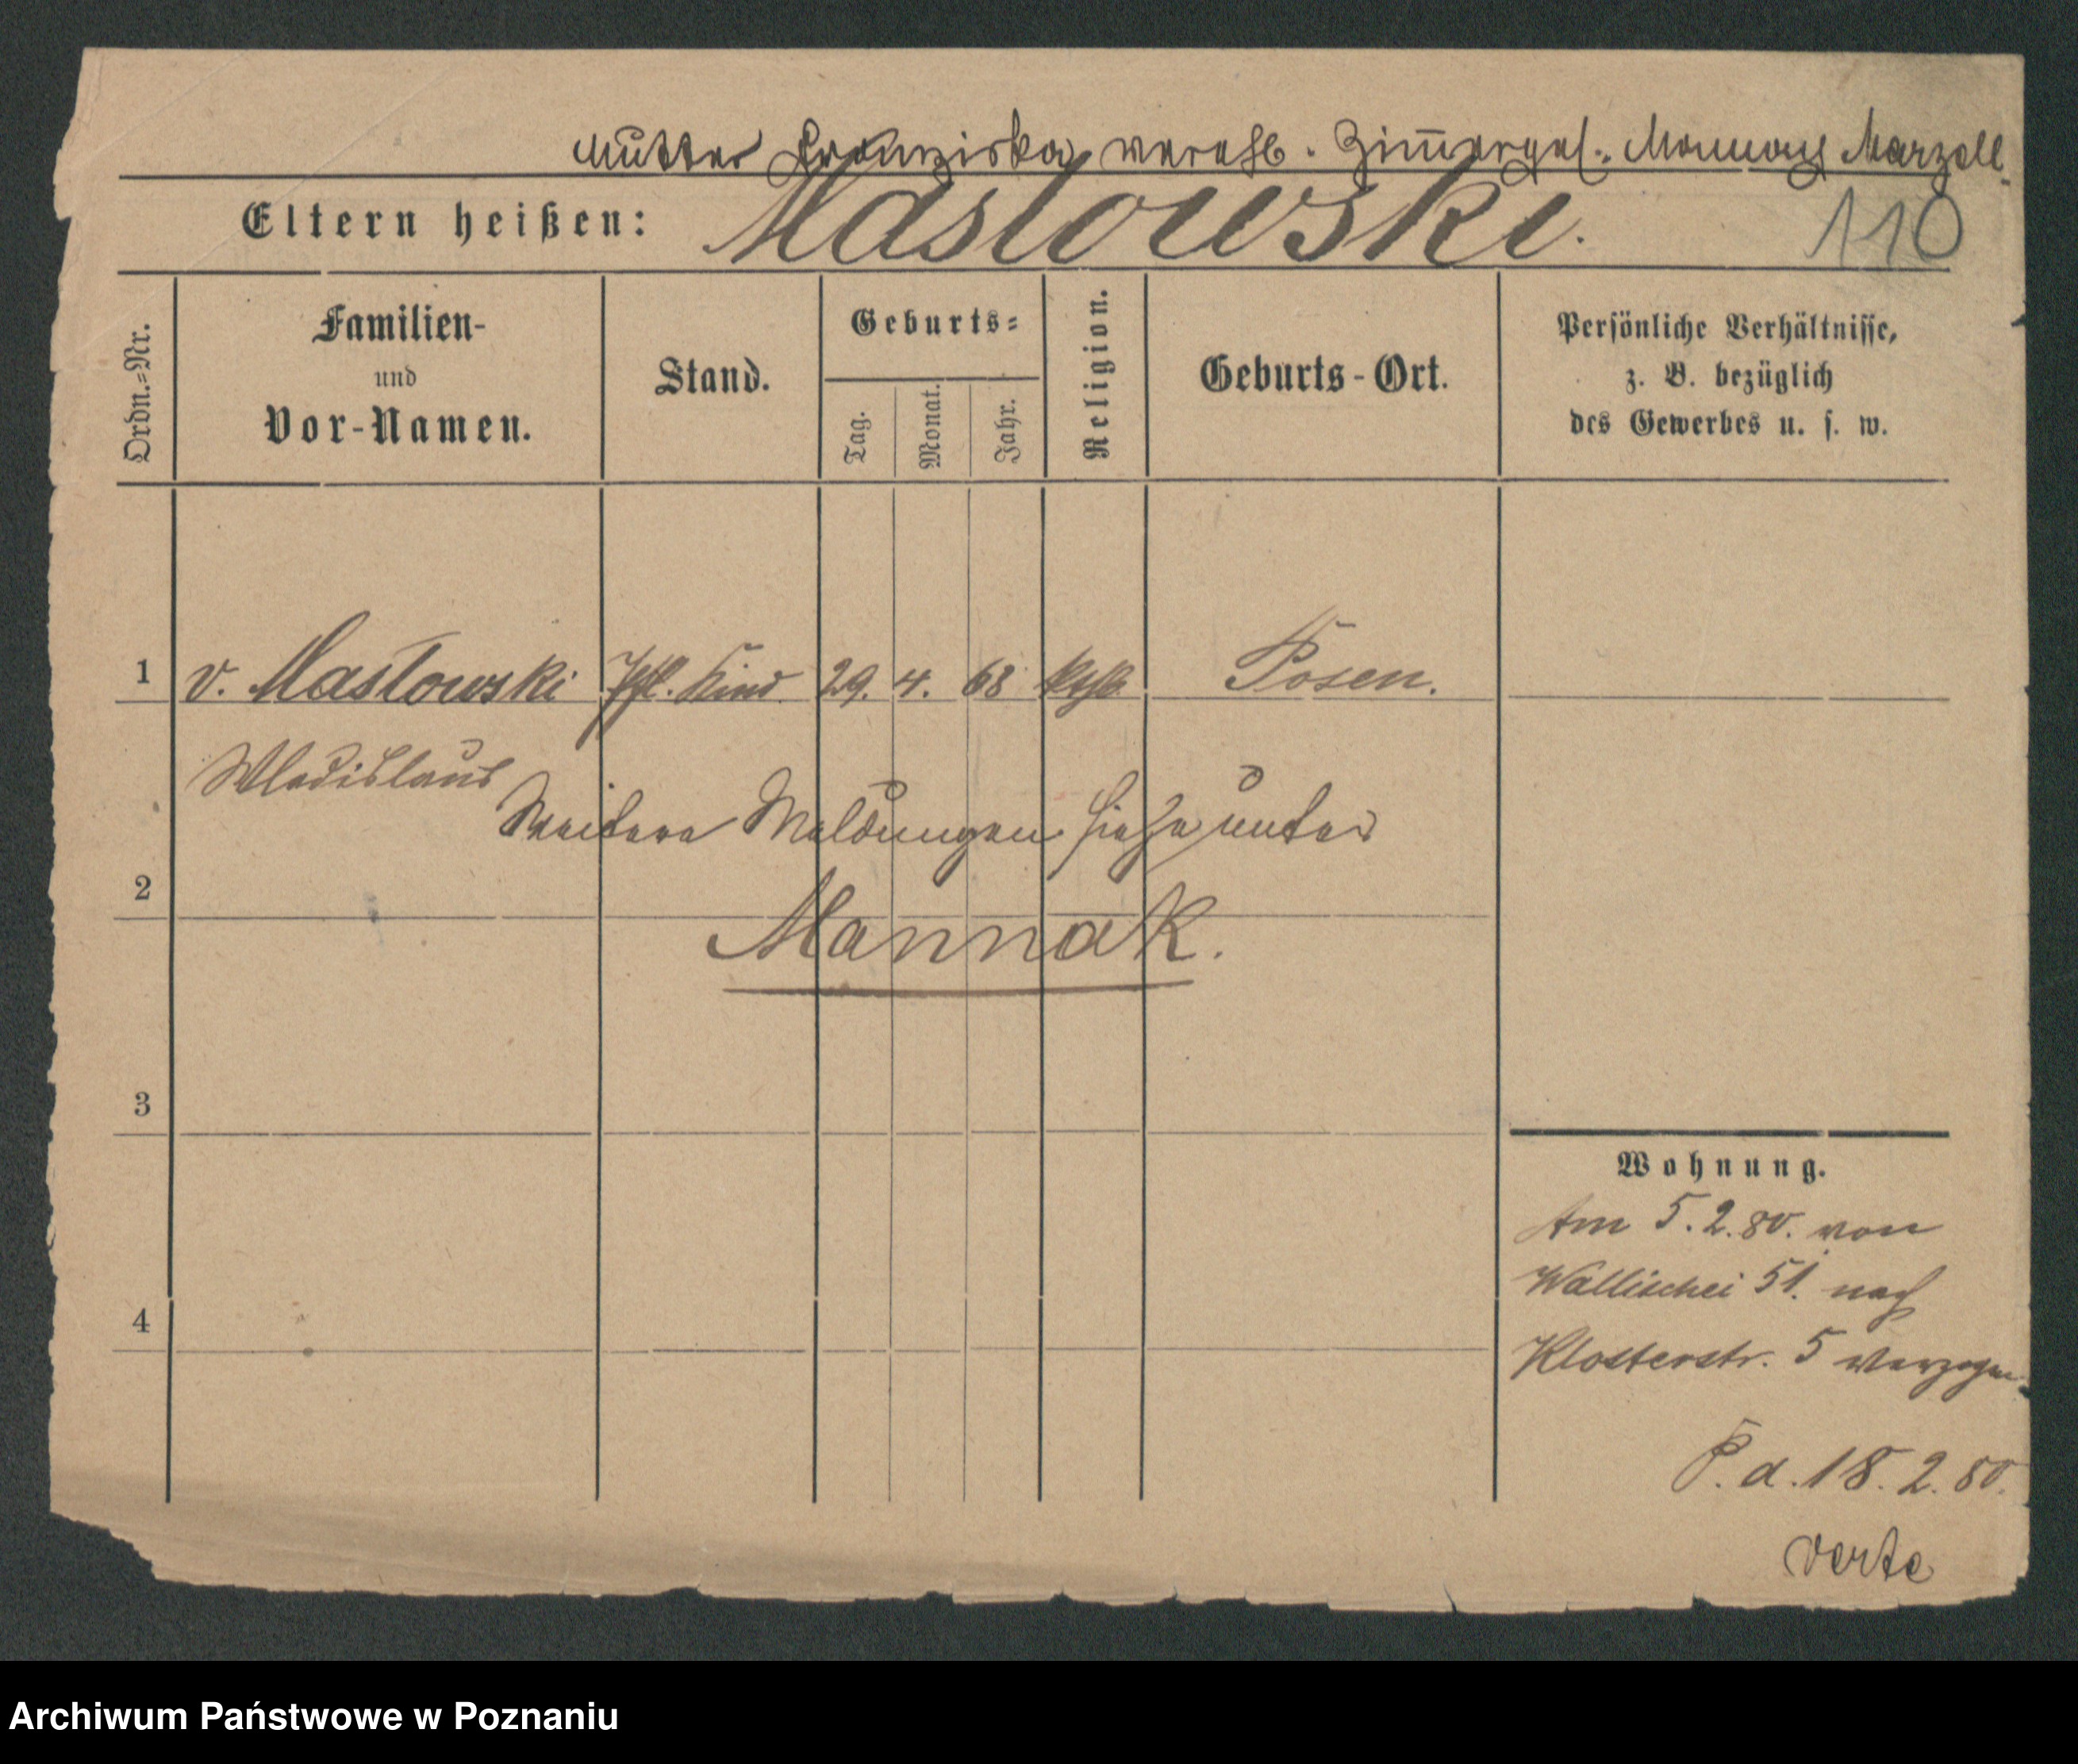 Mutter Franziska verehl. Zimmerges. Mannak Marzell
Eltern heißen: Maslowski.
110
Ordn.=Nr.
Familien-
und
Vor-Namen.
Stand.
Geburts=
Tag.
Monat.
Jahr.
Religion.
Geburts-Ort.
Persönliche Verhältnisse,
z. B. bezüglich
des Gewerbes u. s. w.
1 v. Masłowski Pfl. Kind. 29. 4. 68 kath. Posen.
Wladislaus
Weitere Meldungen siehe unter
2
Mannak.
3
4
Wohnung.
Am 5. 2. 80. von
Wallischei 51. nach
Klosterstr. 5 verzogen.
P. d. 18. 2. 80.
verte
Archiwum Państwowe w Poznaniu